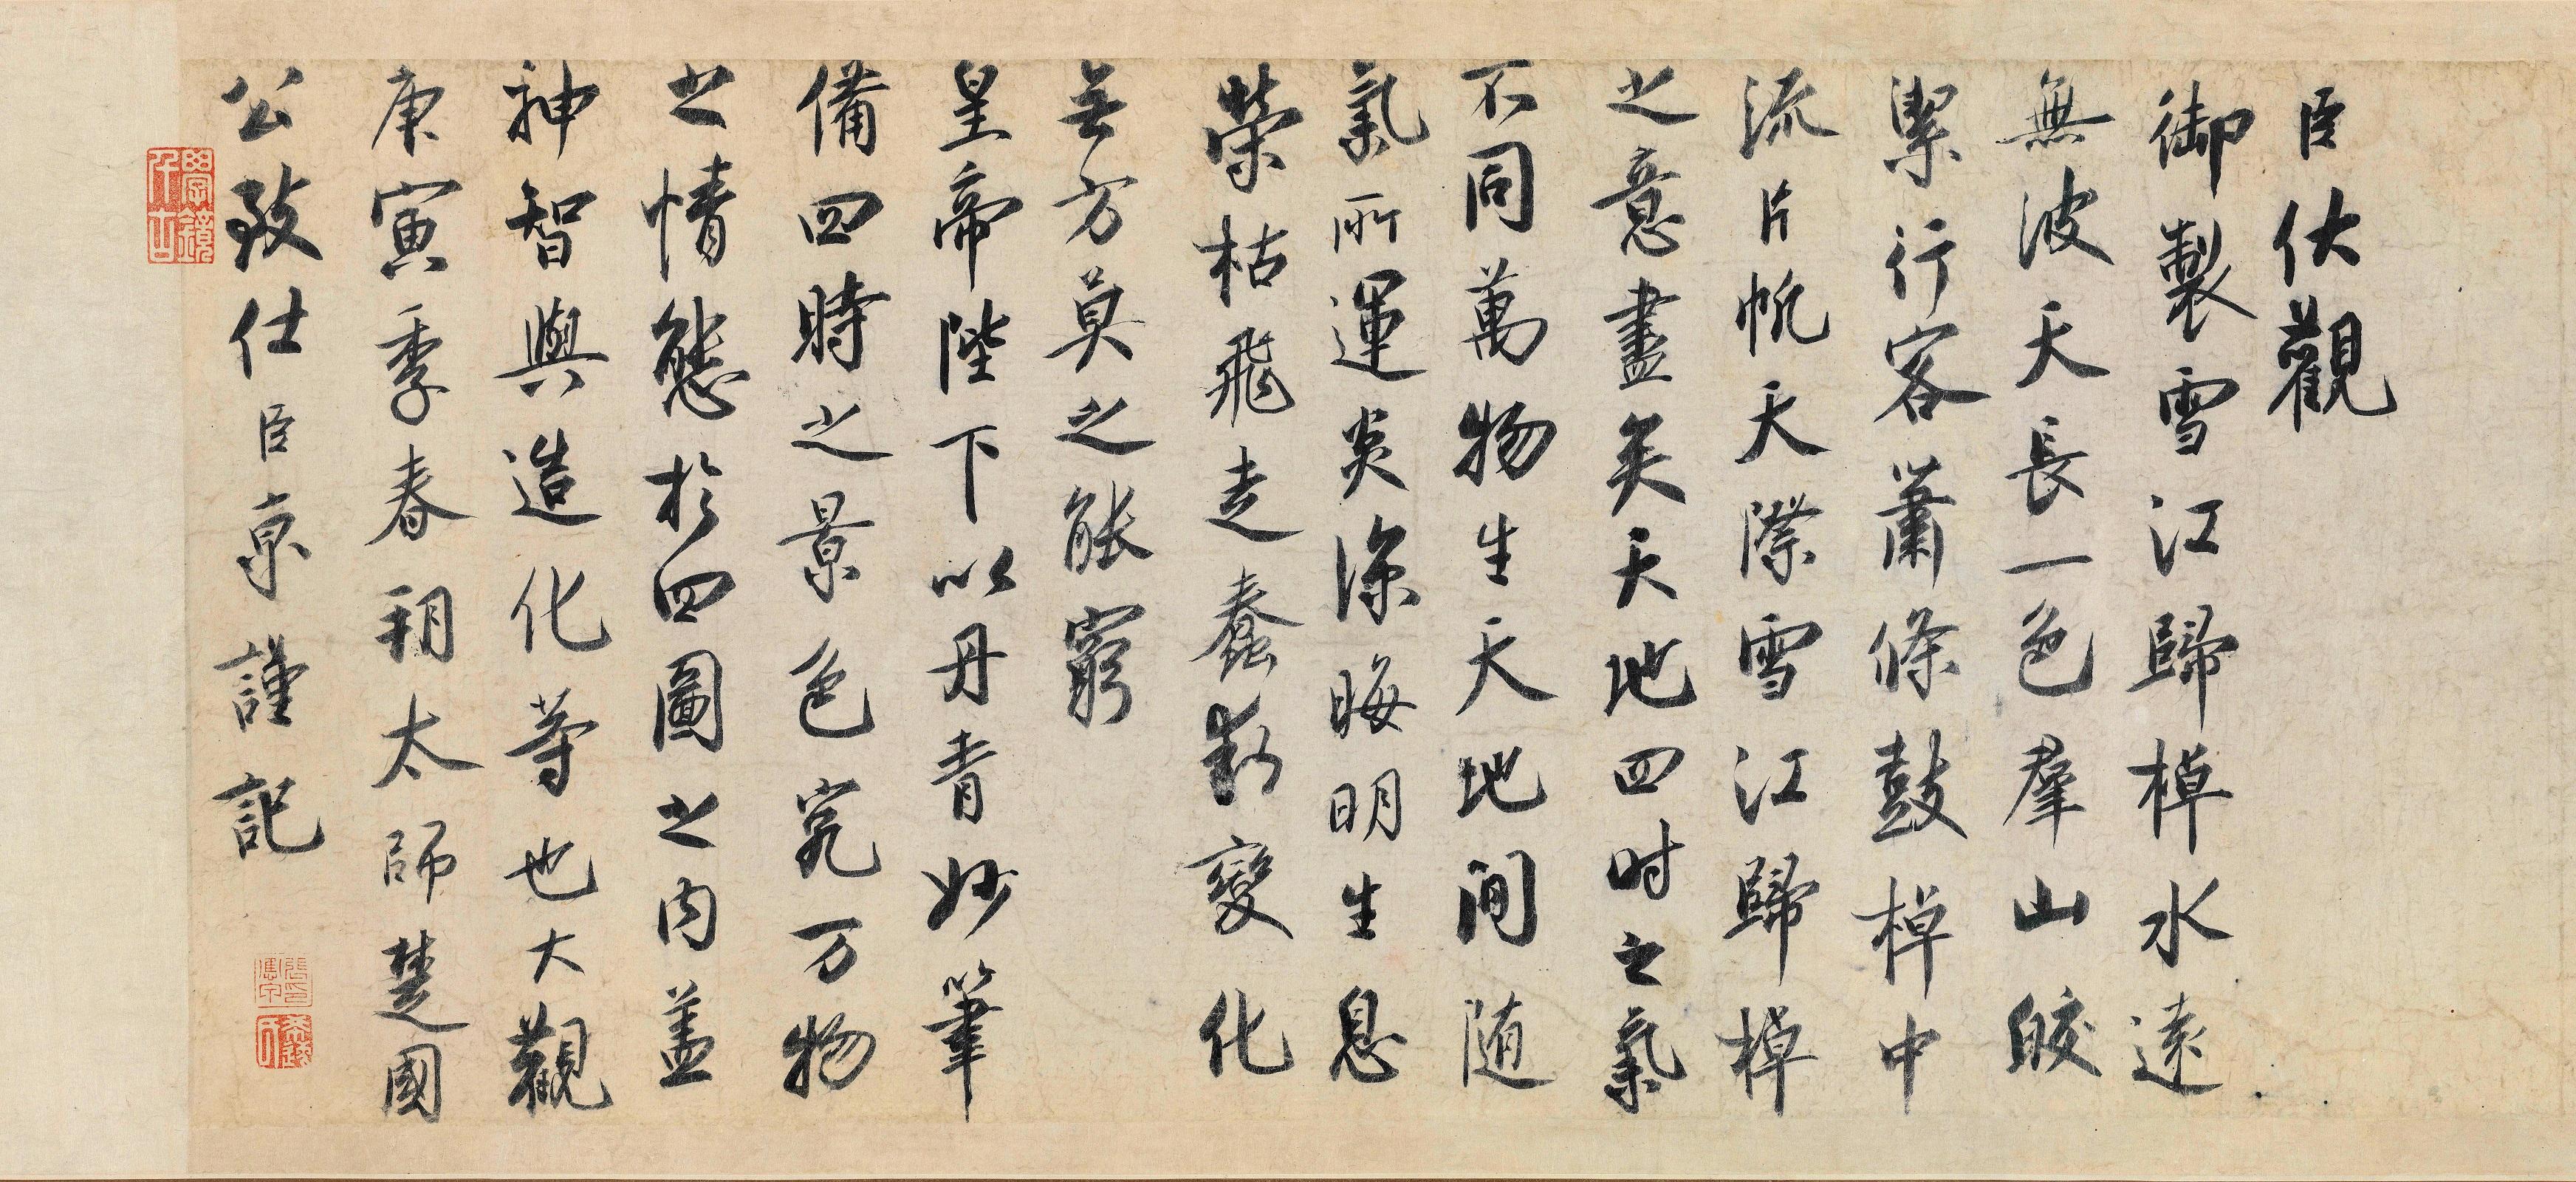 臣伏觀
御製雪江歸棹水遠
無波天長一色羣山皎
潔行客蕭條鼓棹中
流片帆天際雪江歸棹
之意盡矣天地四时之氣
不同萬物生天地间随
氣所運炎涼晦明生息
榮枯飛走蠢動變化
無方莫之能窮
皇帝陛下以丹青妙筆
備四時之景色究万物
之情態於四圖之内蓋
神智與造化等也大觀
庚寅季春朔太師楚國
公致仕臣京謹記